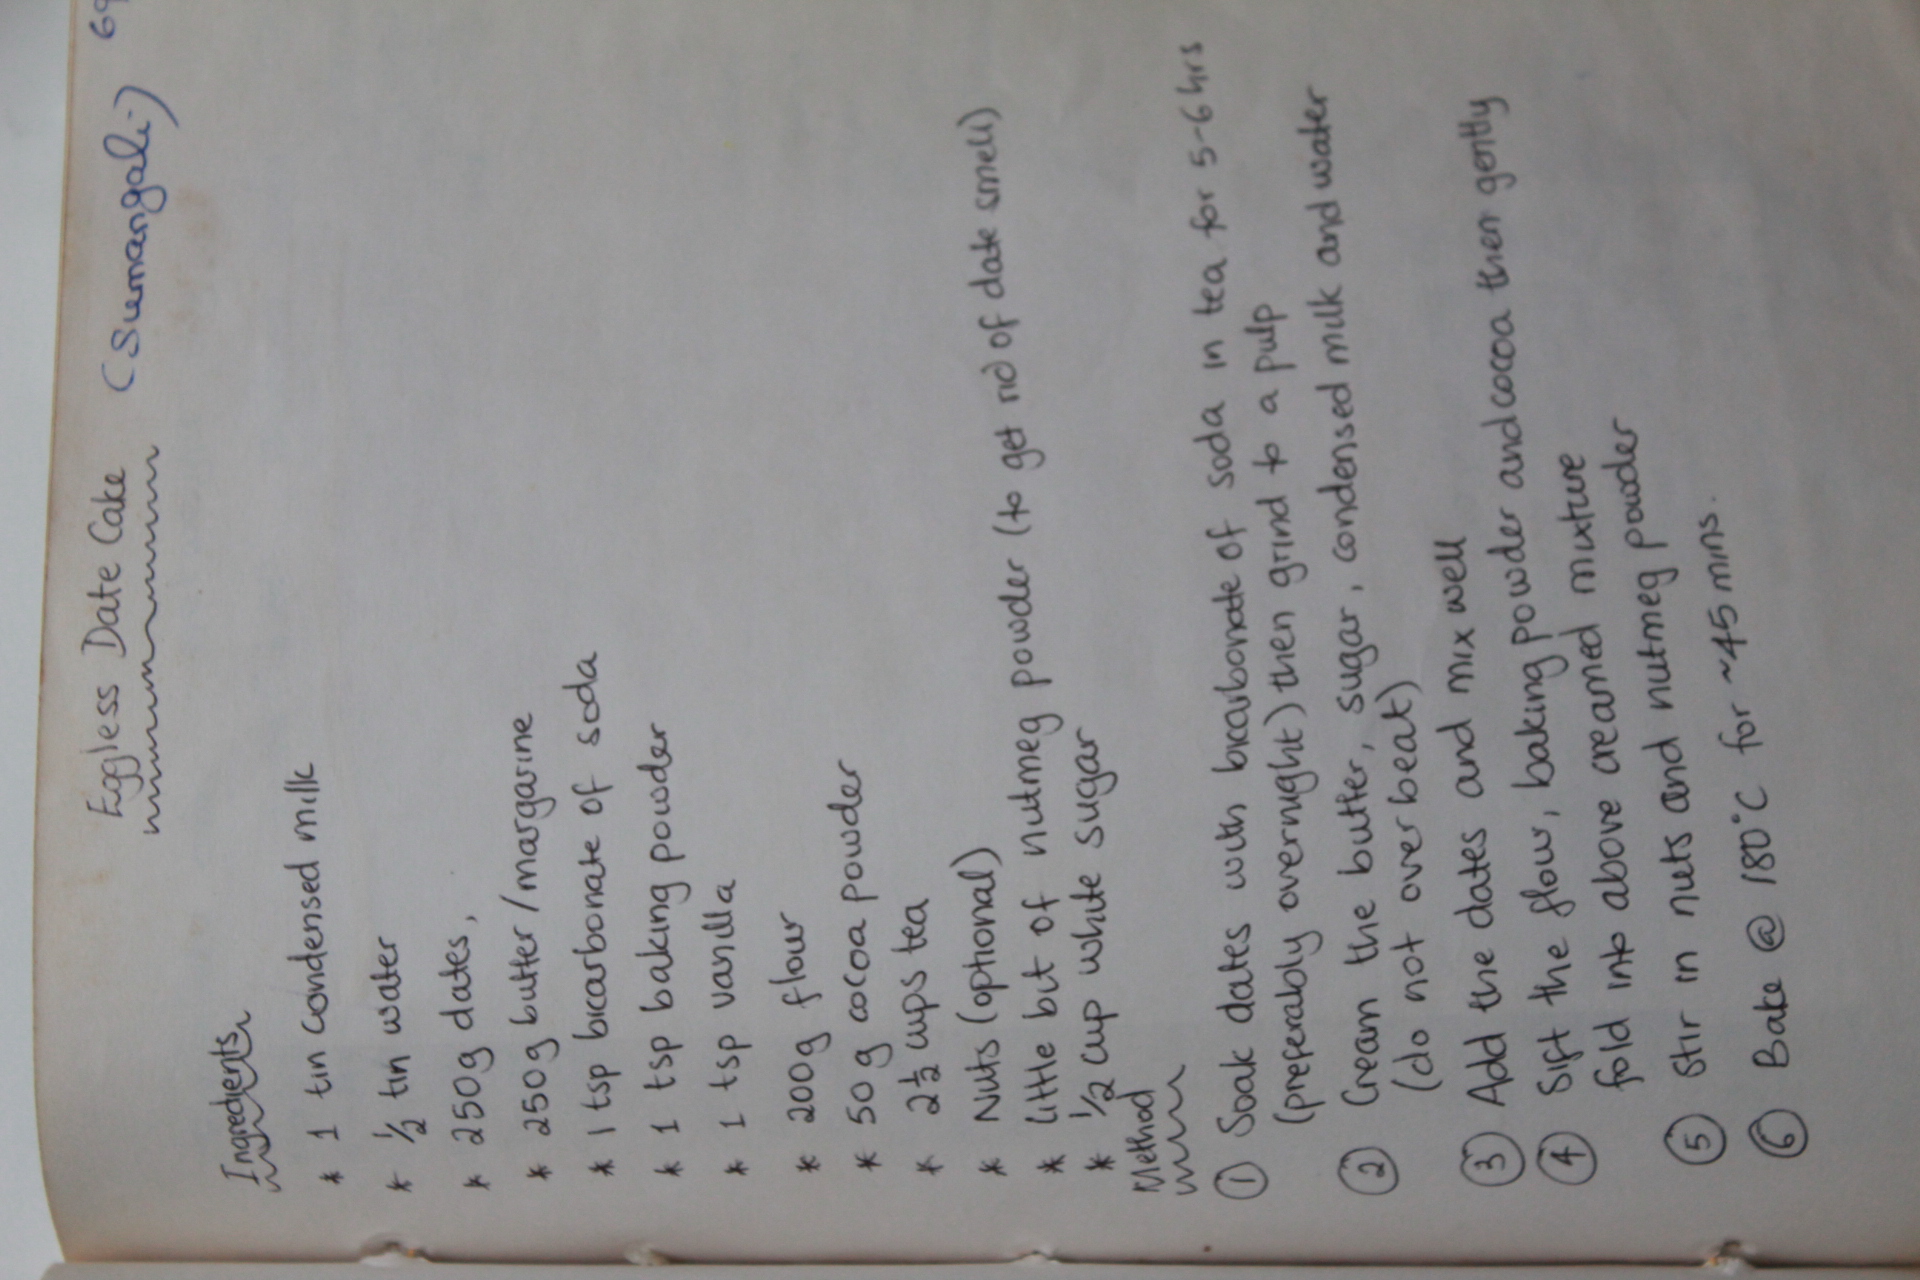 Eggless Date Cake (Sumangali) 69
Ingredients
* 1 tin condensed milk
* 1/2 tin water
* 250g dates,
* 250g butter/margarine
* 1 tsp bicarbonate of soda
* 1 tsp baking powder
* 1 tsp vanilla
* 200g flour
* 50g cocoa powder
* 2 1/2 cups tea
* Nuts (optional)
* little bit of nutmeg powder (to get rid of date smell)
* 1/2 cup white sugar
Method
① Soak dates with bicarbonate of soda in tea for 5-6hrs
(preferably overnight) then grind to a pulp
② Cream the butter, sugar, condensed milk and water
(do not overbeat)
③ Add the dates and mix well
④ Sift the flour, baking powder and cocoa then gently
fold into above creamed mixture
⑤ Stir in nuts and nutmeg powder
⑥ Bake @ 180°C for ~45mins.